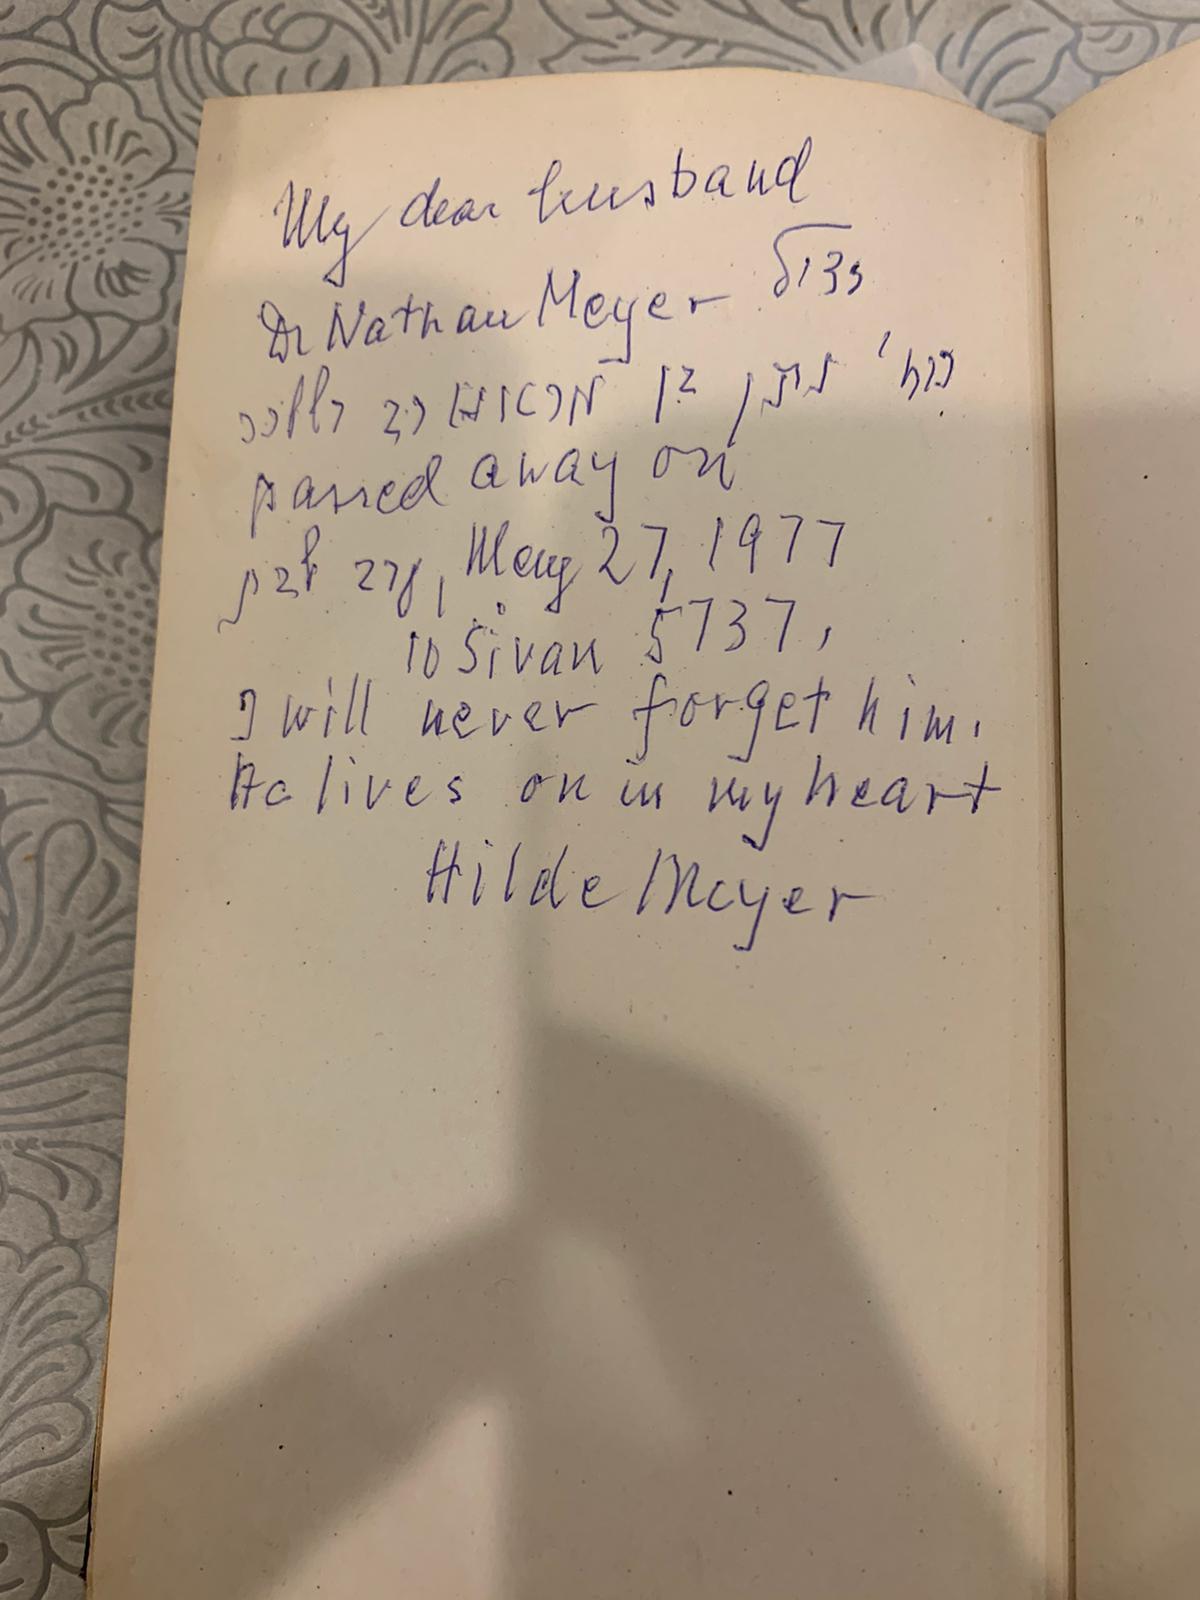 My dear husband
Dr Nathan Meyer ז״ל
נתן בן
passed away on
ערב שבת, May 27, 1977
10 Sivan 5737,
I will never forget him.
He lives on in my heart
Hilde Meyer